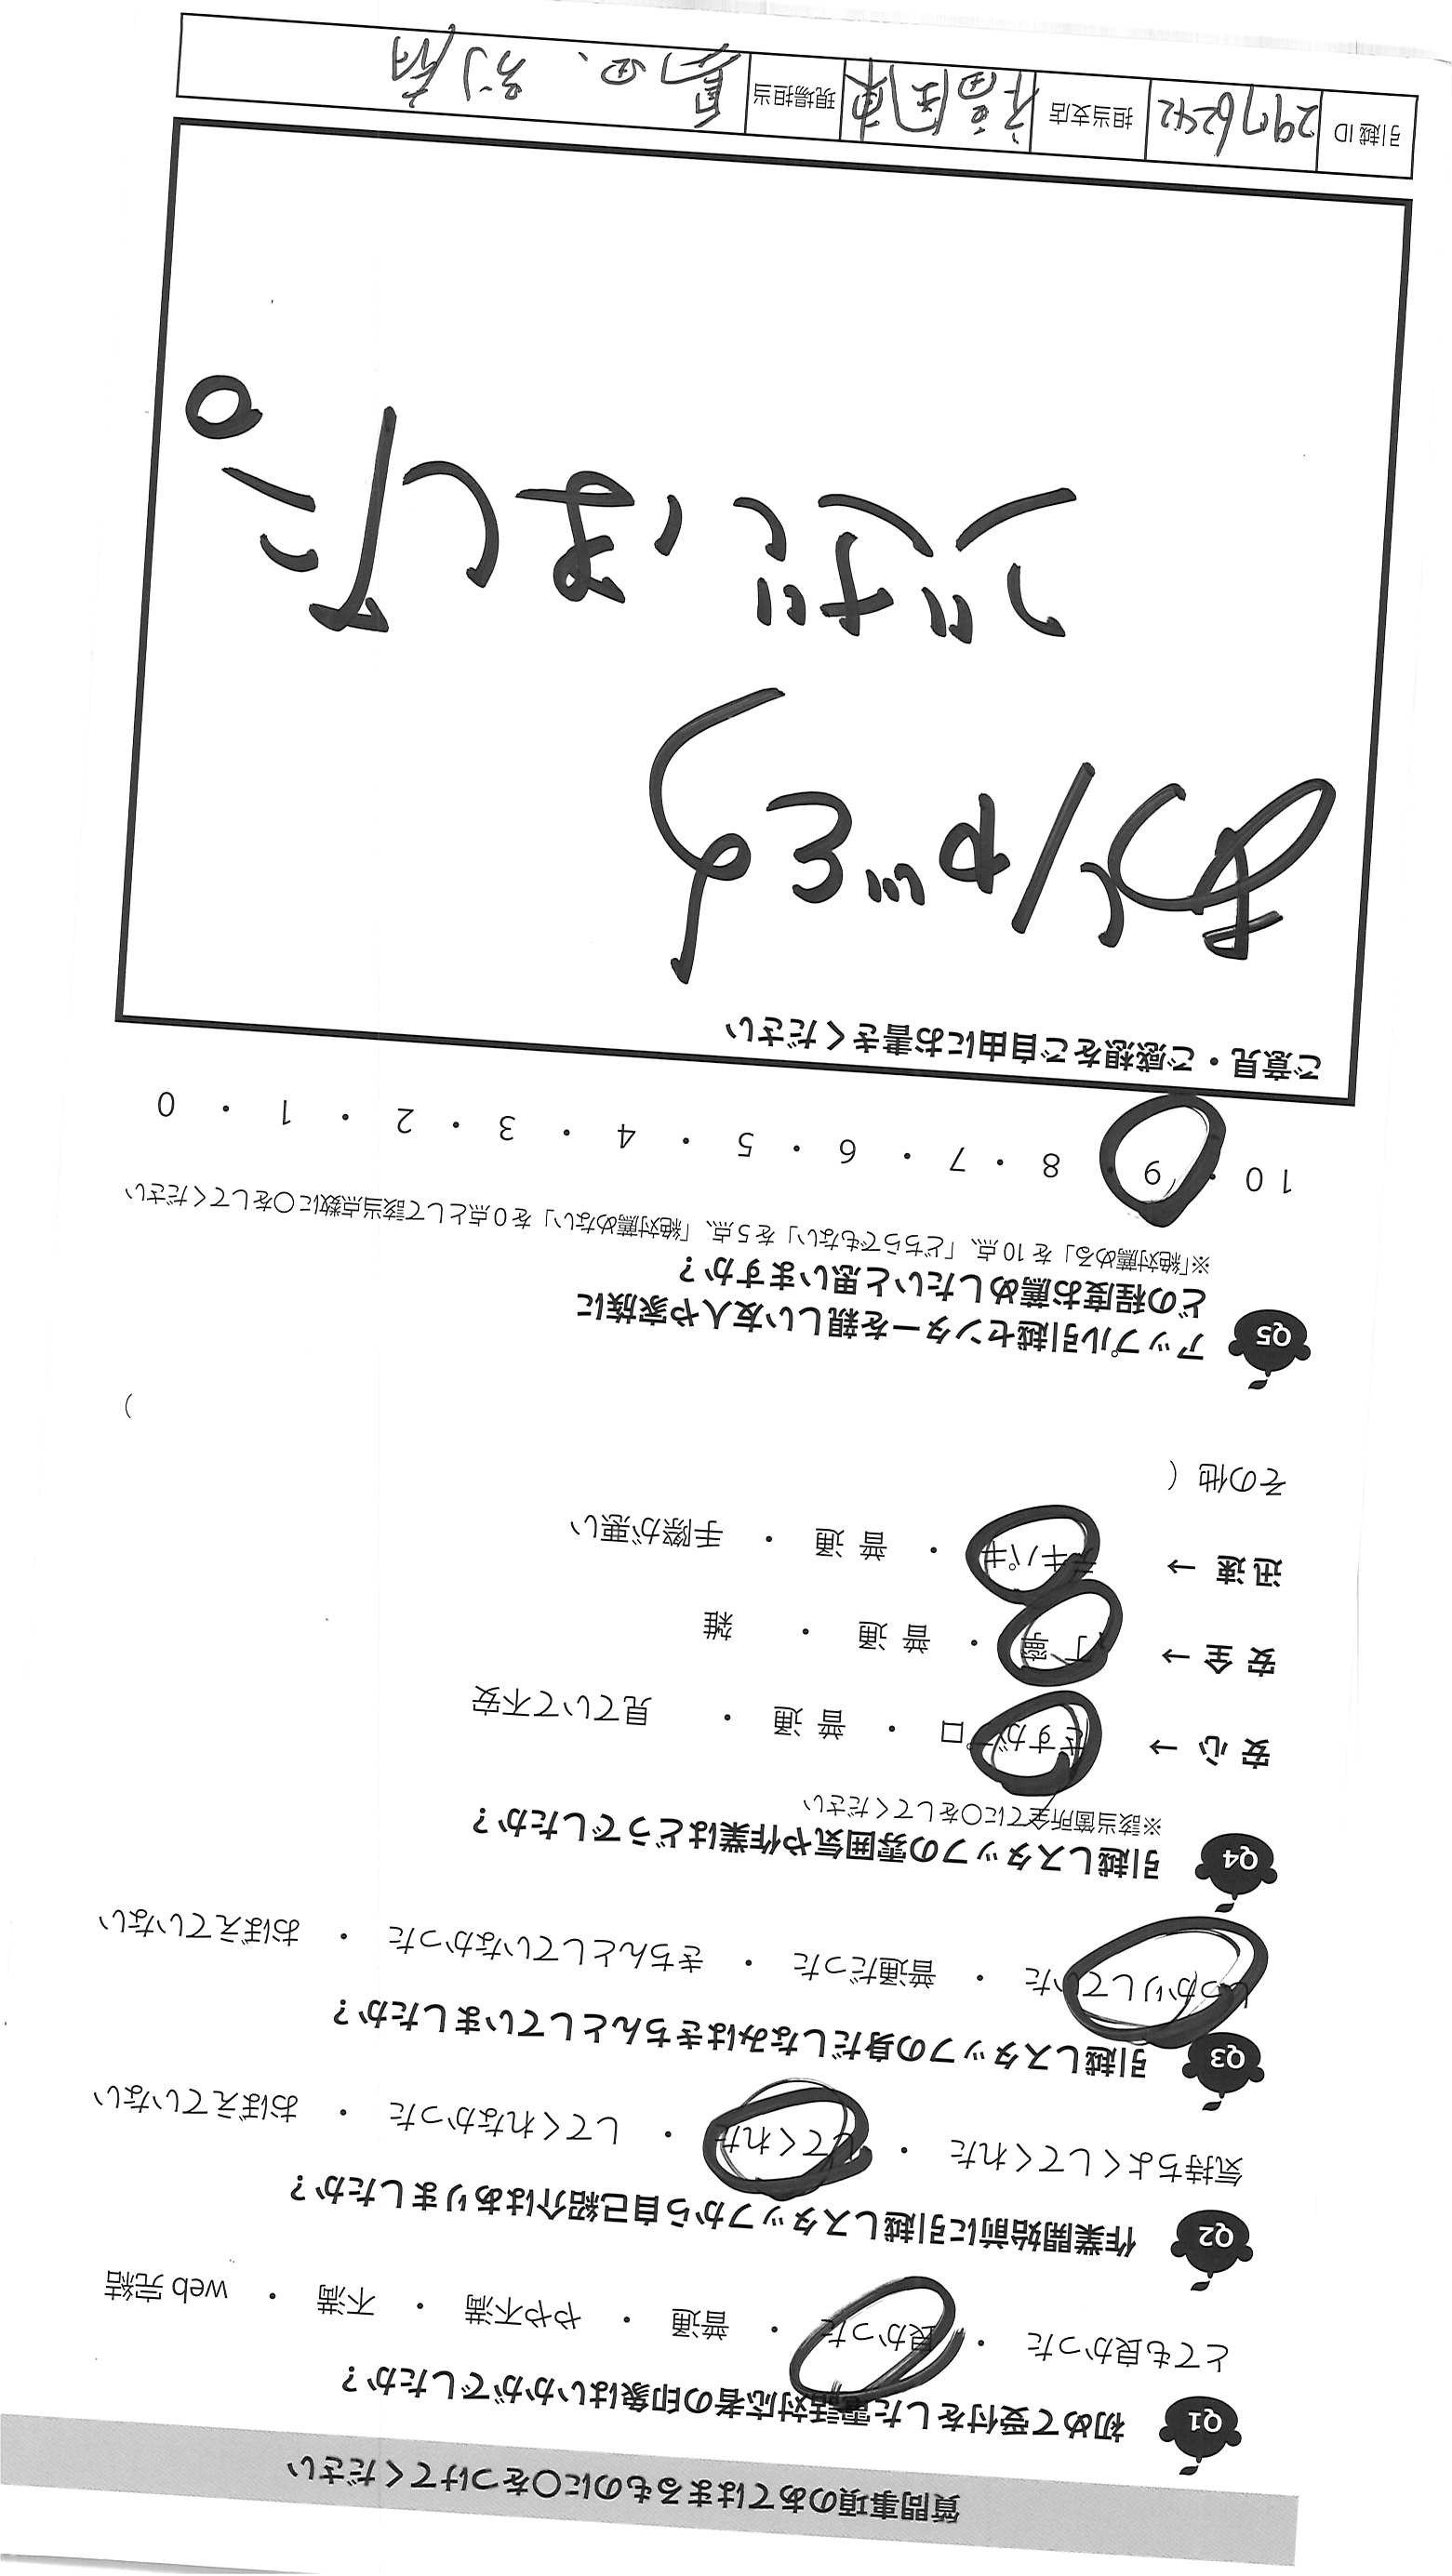 質問事項のあてはまるものに〇をつけてください
Q1 初めて受付をした電話対応者の印象はいかがでしたか？
とても良かった ・ 良かった ・ 普通 ・ やや不満 ・ 不満 ・ web 完結
Q2 作業開始前に引越しスタッフから自己紹介はありましたか？
気持ちよくしてくれた ・ してくれた ・ してくれなかった ・ おぼえていない
Q3 引越しスタッフの身だしなみはきちんとしていましたか？
しっかりしていた ・ 普通だった ・ きちんとしていなかった ・ おぼえていない
Q4 引越しスタッフの雰囲気や作業はどうでしたか？
※該当箇所全てに〇をしてください
安心 → さすがプロ ・ 普通 ・ 見ていて不安
安全 → 丁寧 ・ 普通 ・ 雑
迅速 → テキパキ ・ 普通 ・ 手際が悪い
その他 （ ）
Q5 アップル引越センターを親しい友人や家族に
どの程度お薦めしたいと思いますか？
※「絶対薦める」を 10 点、「どちらでもない」を 5 点、「絶対薦めない」を 0 点として該当点数に〇をしてください
10 ・ 9 ・ 8 ・ 7 ・ 6 ・ 5 ・ 4 ・ 3 ・ 2 ・ 1 ・ 0
ご意見・ご感想をご自由にお書きください
ありがとう
ございました。
引越 ID 2976242 担当支店 福岡東 現場担当